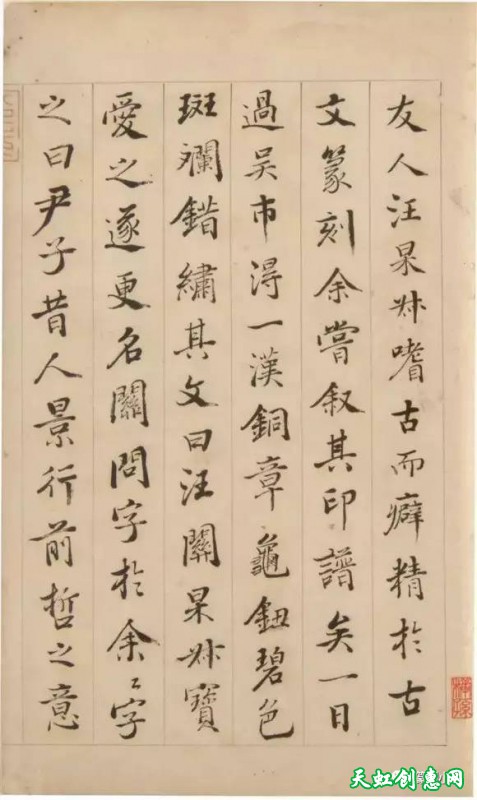 友人汪杲叔嗜古而癖精於古
文篆刻余嘗叙其印譜矣一日
過吴市得一漢銅章龜鈕碧色
斑斕錯繡其文曰汪關杲叔寶
愛之遂更名關問字於余〻字
之曰尹子昔人景行前哲之意
天虹创惠网